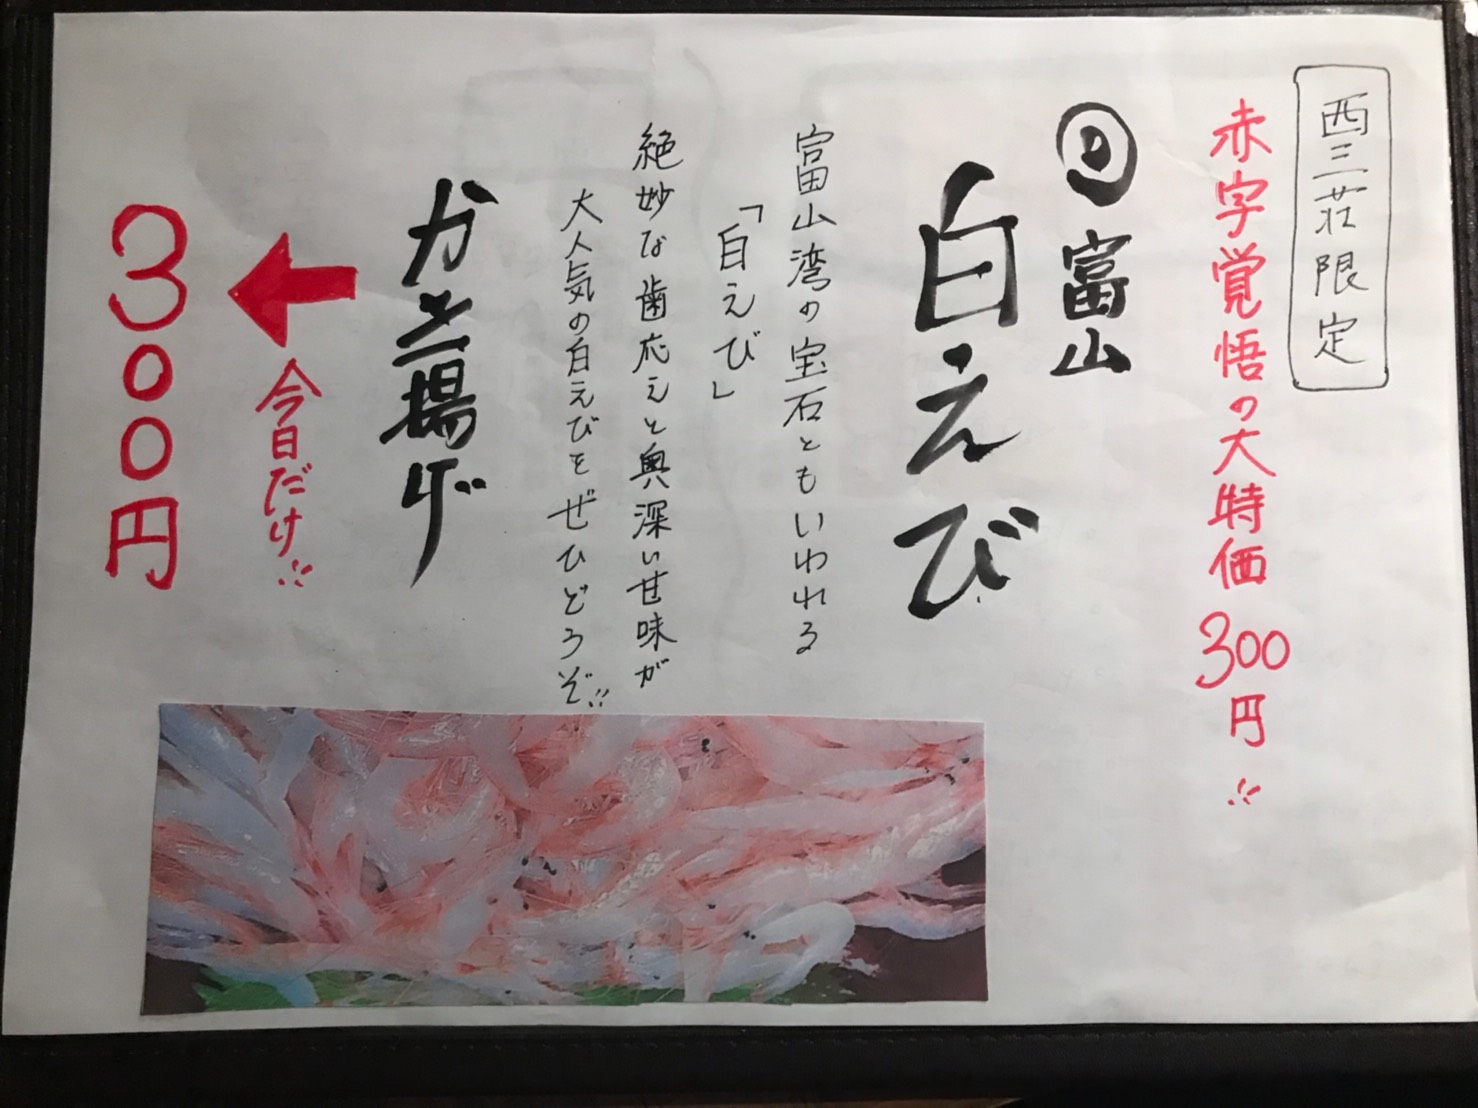 西三荘限定
赤字覚悟の大特価300円!!
富山
白えび
富山湾の宝石ともいわれる
「白えび」
絶妙な歯応えと奥深い甘味が
大人気の白えびをぜひどうぞ!!
かき揚げ
今日だけ!!
300円